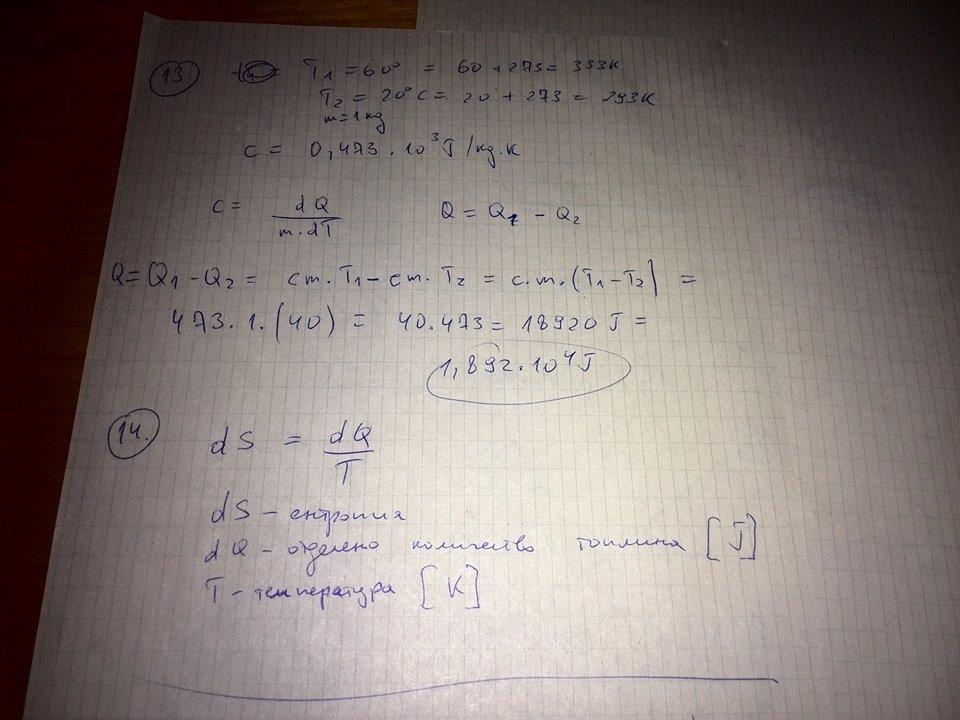 13. T₁ = 60° = 60 + 273 = 333K
T₂ = 20°C = 20 + 273 = 293K
m = 1 kg
c = 0,473 . 10³ J/kg.K
c = dQ / m.dT Q = Q₁ - Q₂
Q = Q₁ - Q₂ = cm.T₁ - cm.T₂ = c.m.(T₁ - T₂) =
473.1.(40) = 40.473 = 18920 J =
1,892.10⁴ J
14. dS = dQ / T
dS - ентропия
dQ - отделено количество топлина [J]
T - температура [K]